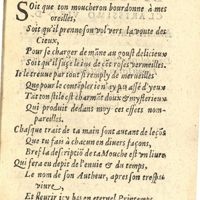 Soit que ton moucheron bourdonne à mes
oreilles,
Soit qu'il prenne son vol vers la voute des
Cieux,
Pour se charger de mâne au goust delicieux
Soit qu'il suçe le ius de côs roses vermeilles.
Ie le treuue par tout si remply de merueilles
Que pour le contépler ie n'ay pas assé d'yeux
Tât ton stile est charmât doux & mysterieux
Qui produit dedans moy ces effets nonpareilles.
Chaque trait de ta main sont autant de leçôs
Que tu fais à chacun en diuers façons,
Bref la descriptiô de ta Mouche est viuante
Qui fera en depit de l'enuie & du temps,
Le nom de son Autheur, apres son trespas
viure,
Et fleurir icy bas en eternel Printemps.